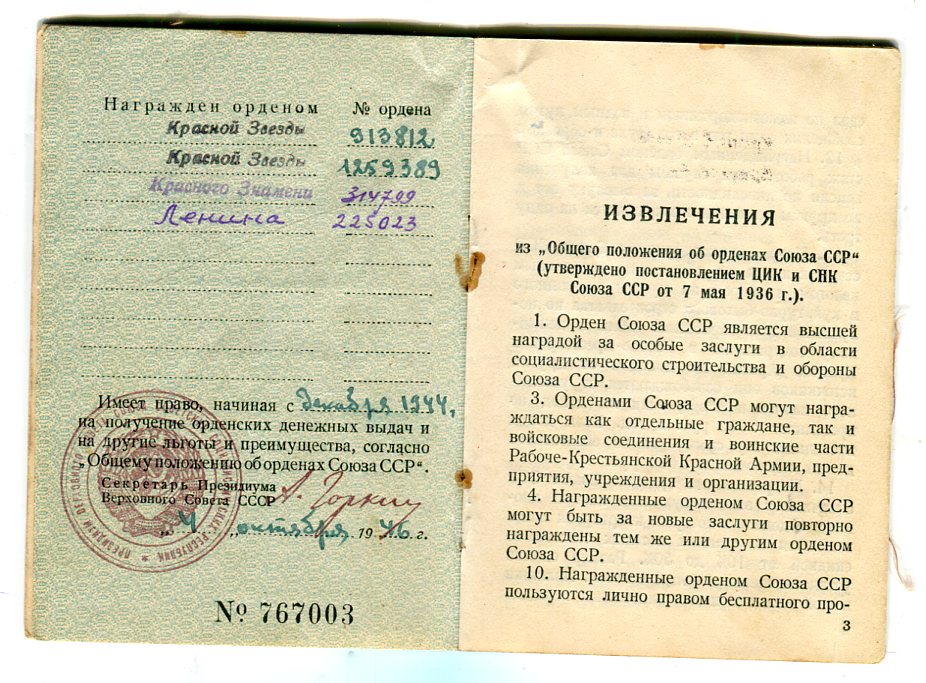 Награжден орденом № ордена
Красной Звезды 913812
Красной Звезды 1259389
Красного Знамени 314799
Ленина 225023
Имеет право, начиная с декабря 1944,
на получение орденских денежных выдач и
на другие льготы и преимущества, согласно
„Общему положению об орденах Союза ССР“.
Секретарь Президиума
Верховного Совета СССР А. Горкин
„4 „октября 1946 г.
№ 767003
ИЗВЛЕЧЕНИЯ
из „Общего положения об орденах Союза ССР“
(утверждено постановлением ЦИК и СНК
Союза ССР от 7 мая 1936 г.).
1. Орден Союза ССР является высшей
наградой за особые заслуги в области
социалистического строительства и обороны
Союза ССР.
3. Орденами Союза ССР могут награ-
ждаться как отдельные граждане, так и
войсковые соединения и воинские части
Рабоче-Крестьянской Красной Армии, пред-
приятия, учреждения и организации.
4. Награжденные орденом Союза ССР
могут быть за новые заслуги повторно
награждены тем же или другим орденом
Союза ССР.
10. Награжденные орденом Союза ССР
пользуются лично правом бесплатного про-
3